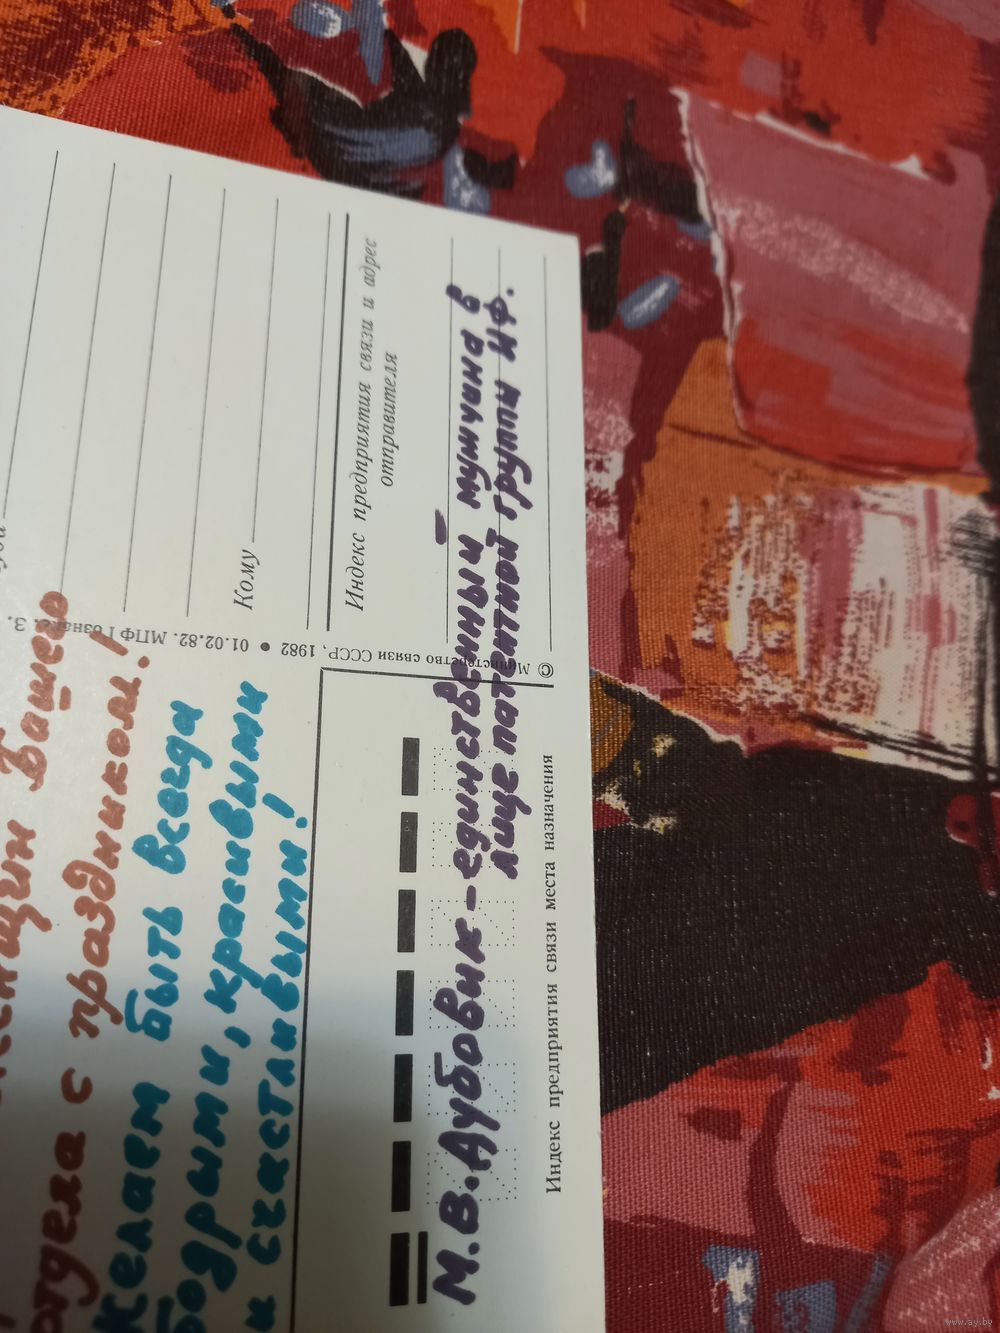 женщин Вашего
отдела с праздником!
Желаем быть всегда
бодрыми, красивыми
и счастливыми!
М.В.Дубовик - единственный мужчина в
лице патентной группы ИФ.
Индекс предприятия связи места назначения
© Министерство связи СССР, 1982 • 01.02.82. МПФ Гознака. З.
Кому
Индекс предприятия связи и адрес
отправителя
www.ay.by